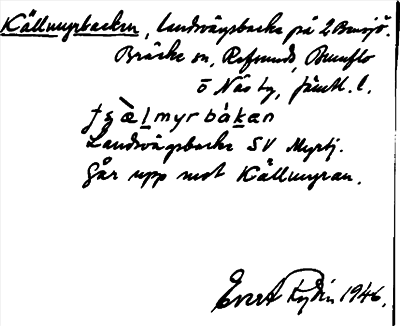 Källmyrbacken, landsvägsbacke på 2 Bensjö.
Bräcke sn, Refsunds, Brunflo
o Näs tg, Jämtl. l.
tsälmyrbakan
Landsvägsbacke SV Myrtj.
Går upp mot Källmyran.
Evert Rydin 1946.